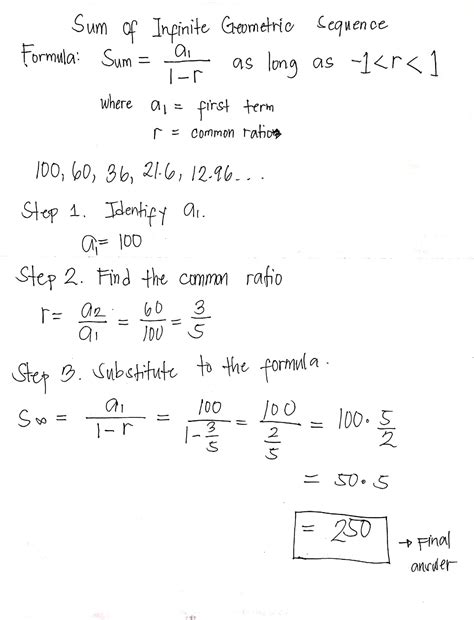 Sum of Infinite Geometric Sequence
Formula: Sum = a₁/(1-r) as long as -1<r<1
where a₁ = first term
r = common ratio
100, 60, 36, 21.6, 12.96...
Step 1. Identify a₁.
a₁= 100
Step 2. Find the common ratio
r= a₂/a₁ = 60/100 = 3/5
Step 3. Substitute to the formula.
S∞ = a₁/(1-r) = 100/(1-3/5) = 100/(2/5) = 100·5/2
= 50·5
= 250 → Final
answer